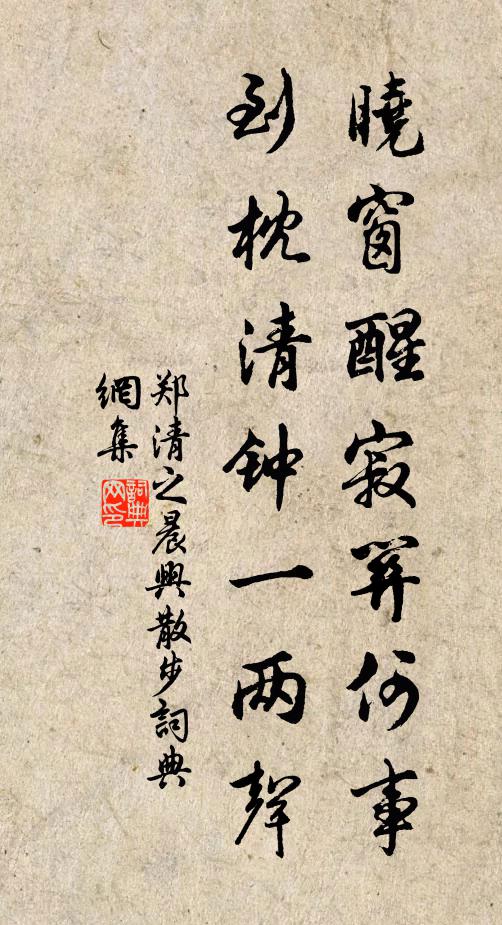 曉窗醒寂算何事
到枕清钟一两聲
郑清之晨興散步詞典
網集
詞典
网印